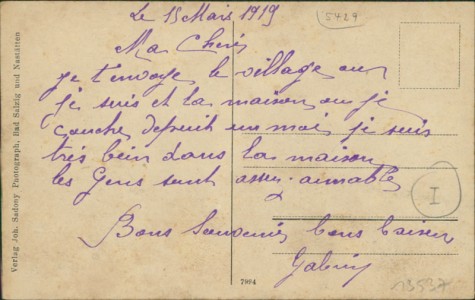 Le 15 Mars 1919
5429
Ma Cheri
je t'envoye le village ou
je suis et la maison ou je
couche depuit un moi je suis
très bien dans la maison
les Gens sont assez aimable
I
Bons Souvenir bons baiser
7994
13537
Verlag Joh. Sadony Photograph, Bad Salzig und Nastätten